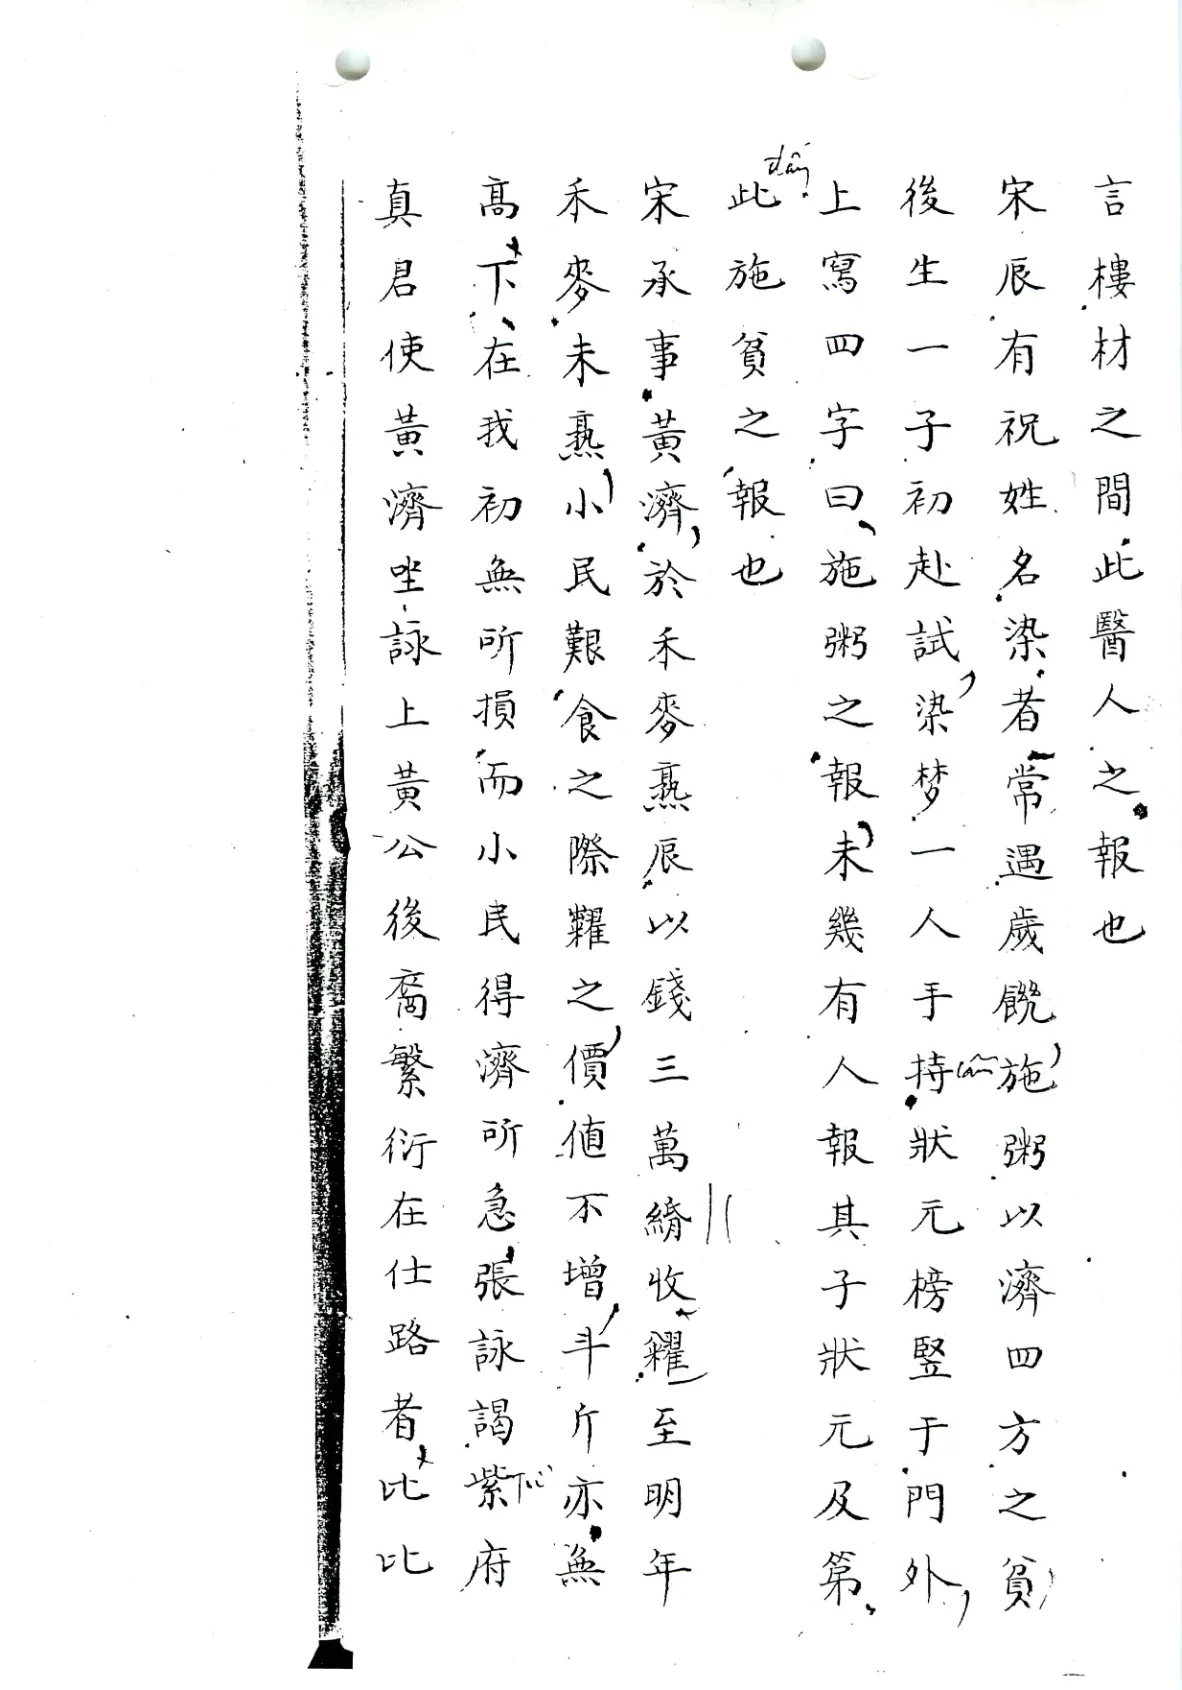 言樓材之間此醫人之報也
宋辰有祝姓名染者常遇歲饑施粥以濟四方之貧
後生一子初赴試染梦一人手持狀元榜竪于門外
上寫四字曰施粥之報未幾有人報其子狀元及第
此施貧之報也
宋承事黃濟於禾麥熟辰以錢三萬緡收糴至明年
禾麥未熟小民艱食之際糶之價值不增斗斤亦無
高下在我初無所損而小民得濟所急張詠謁紫府
真君使黃濟坐詠上黃公後裔繁衍在仕路者比比